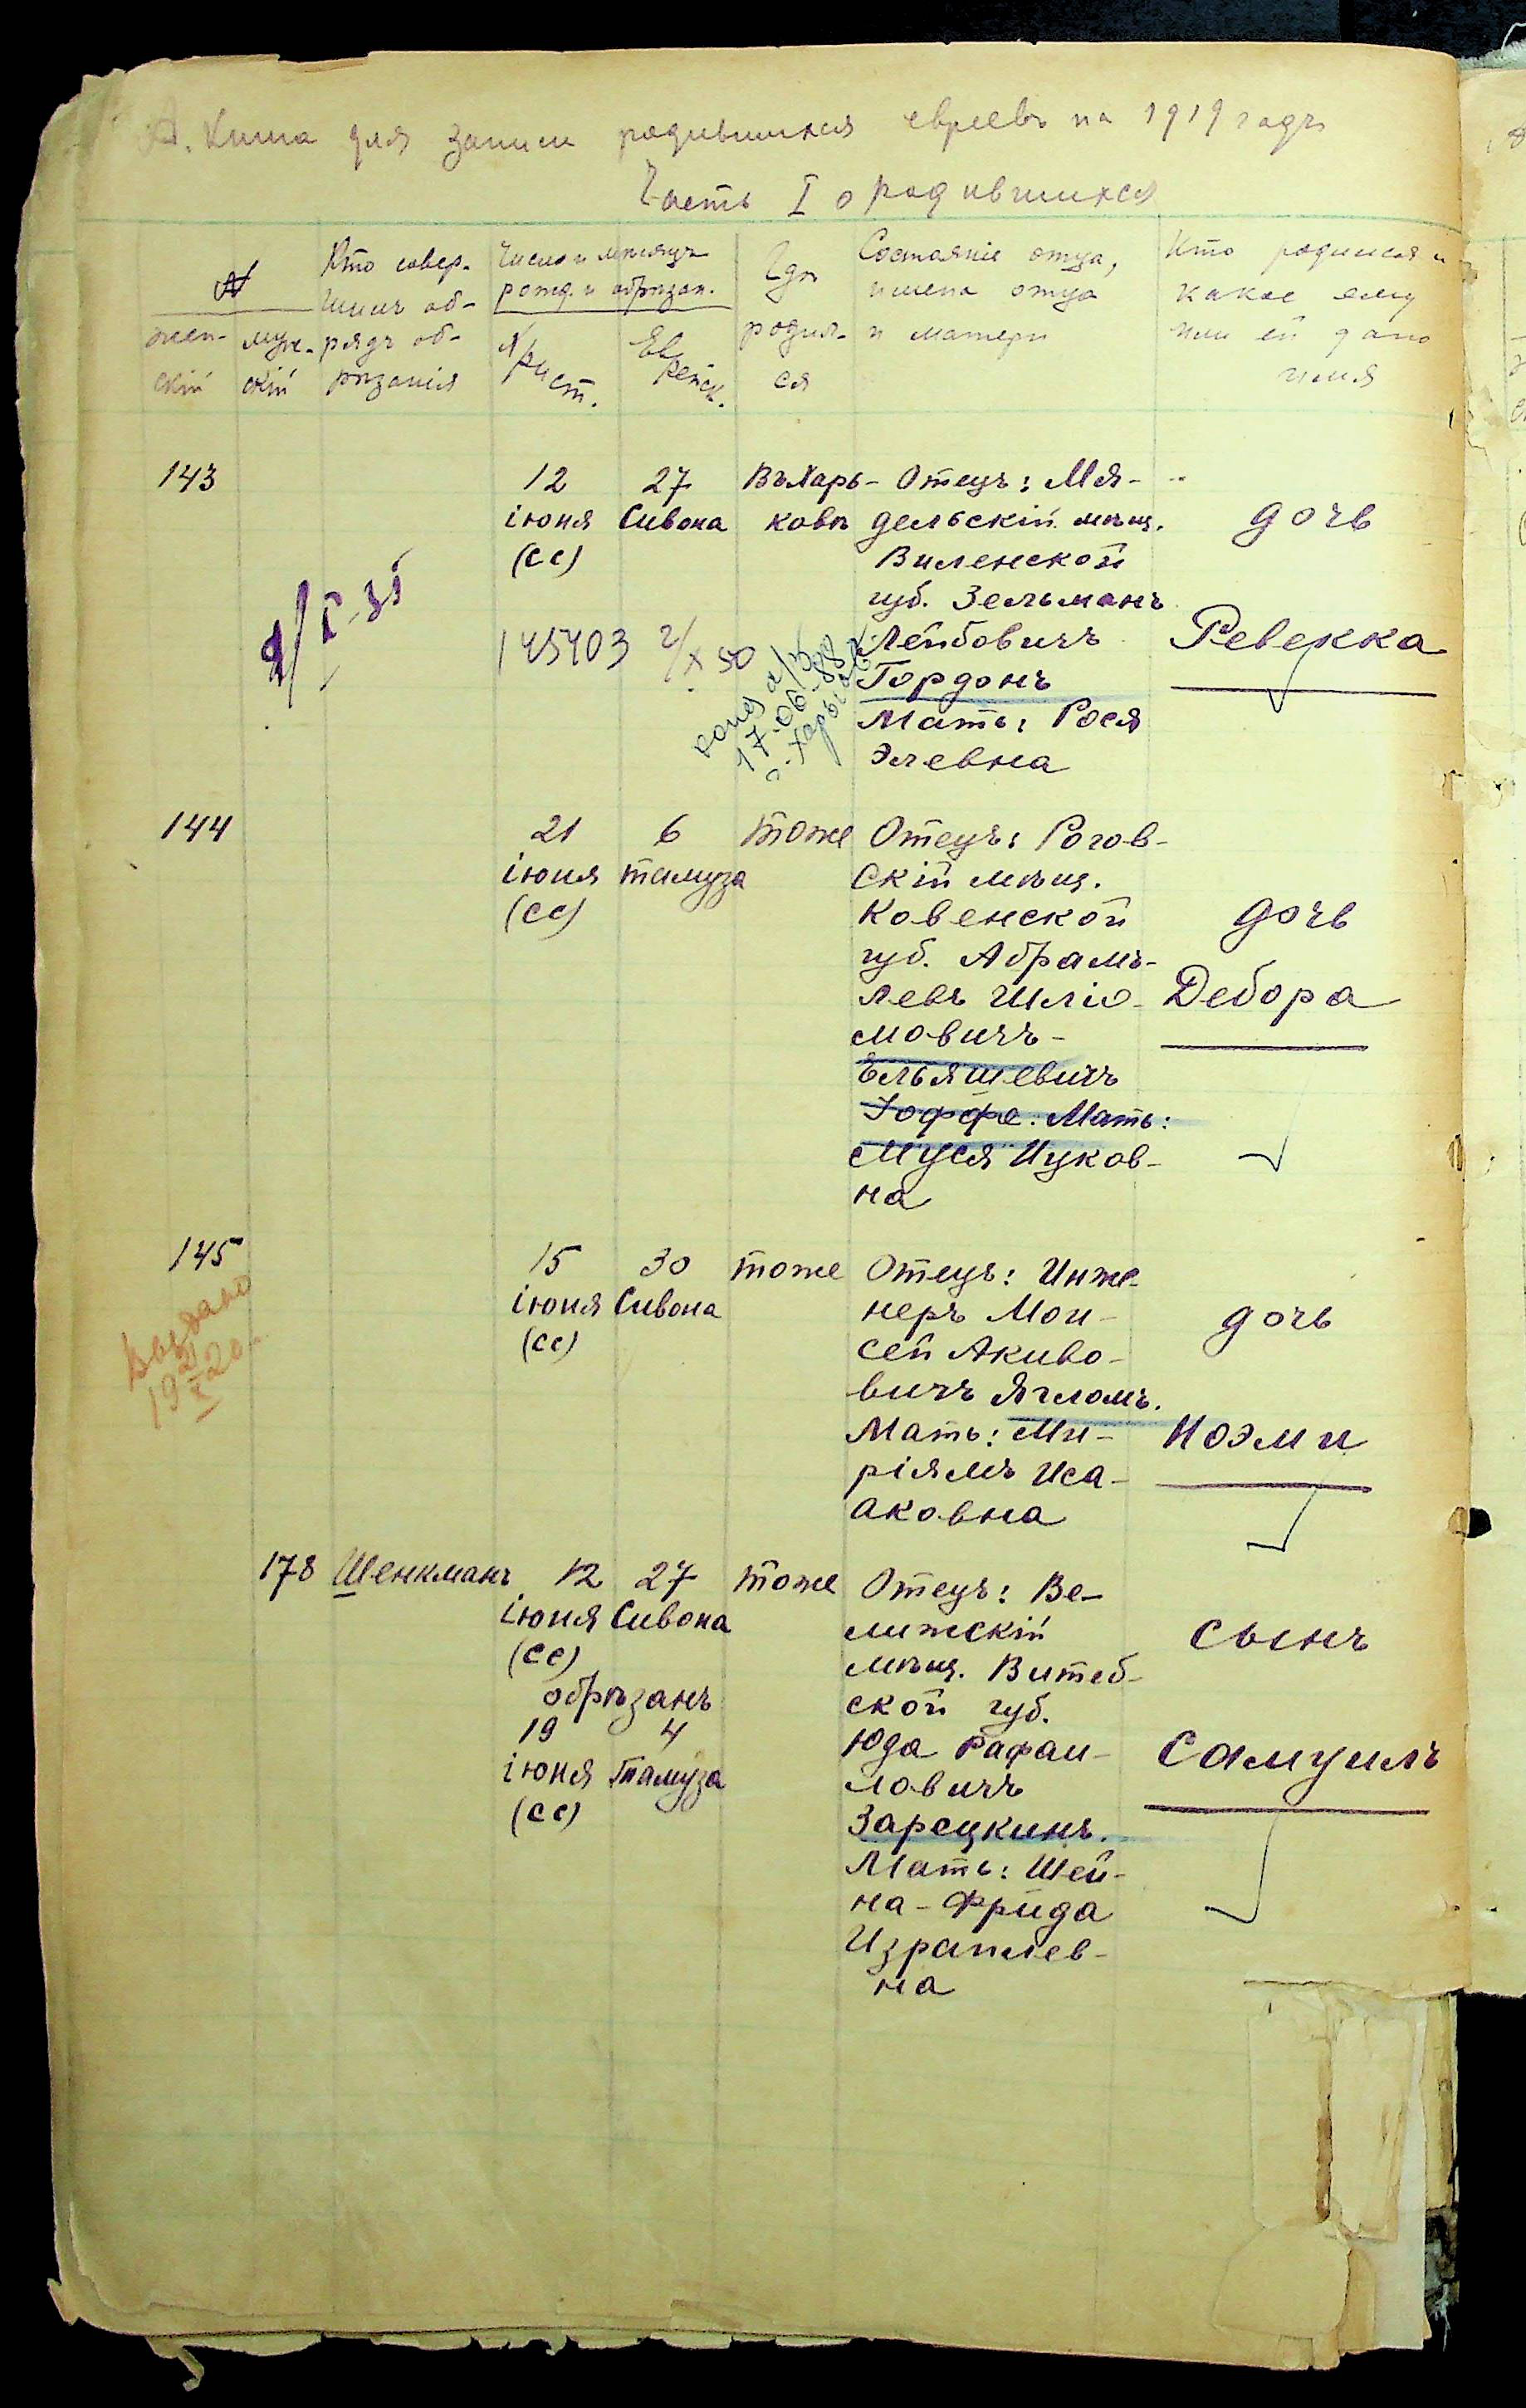 Книга для записи родившихся евреевъ на 1919 годъ
Часть I о родившихся
№
жен-
скій
муж-
скій
Кто совер-
шилъ об-
рядъ об-
рѣзанія
Число и мѣсяцъ
рожд. и обрѣзан.
Христ.
Еврейск.
Гдѣ
родил-
ся
Состояніе отца,
имена отца
и матери
Кто родился и
какое ему
или ей дано
имя
143
12
іюня
(сс)
27
Сивона
Въ Харь-
ковѣ
Отецъ: Мя-
дельскій мѣщ.
Виленской
губ. Зельманъ
Лейбовичъ
Гордонъ
Мать: Рося
Элевна
дочь
Ревекка
145403 2/X 50
17-06-88
144
21
іюня
(сс)
6
тамуза
тоже
Отецъ: Рогов-
скій мѣщ.
Ковенской
губ. Абрамъ-
Левъ Шліо-
мовичъ-
Ельяшевичъ
Іоффе: Мать:
Муся Ицков-
на
дочь
Дебора
145
Выдано
15
іюня
(сс)
30
Сивона
тоже
Отецъ: Инже-
неръ Мои-
сей Акиво-
вичъ Ягломъ.
Мать: Ми-
ріямъ Иса-
аковна
дочь
Ноэми
178
Шенкманъ
12
іюня
(сс)
27
Сивона
обрѣзанъ
19
іюня
(сс)
4
Тамуза
тоже
Отецъ: Ве-
лижскій
мѣщ. Витеб-
ской губ.
Юда Рафаи-
ловичъ
Зарецкинъ.
Мать: Шей-
на-Фрида
Израилев-
на
сынъ
Самуилъ